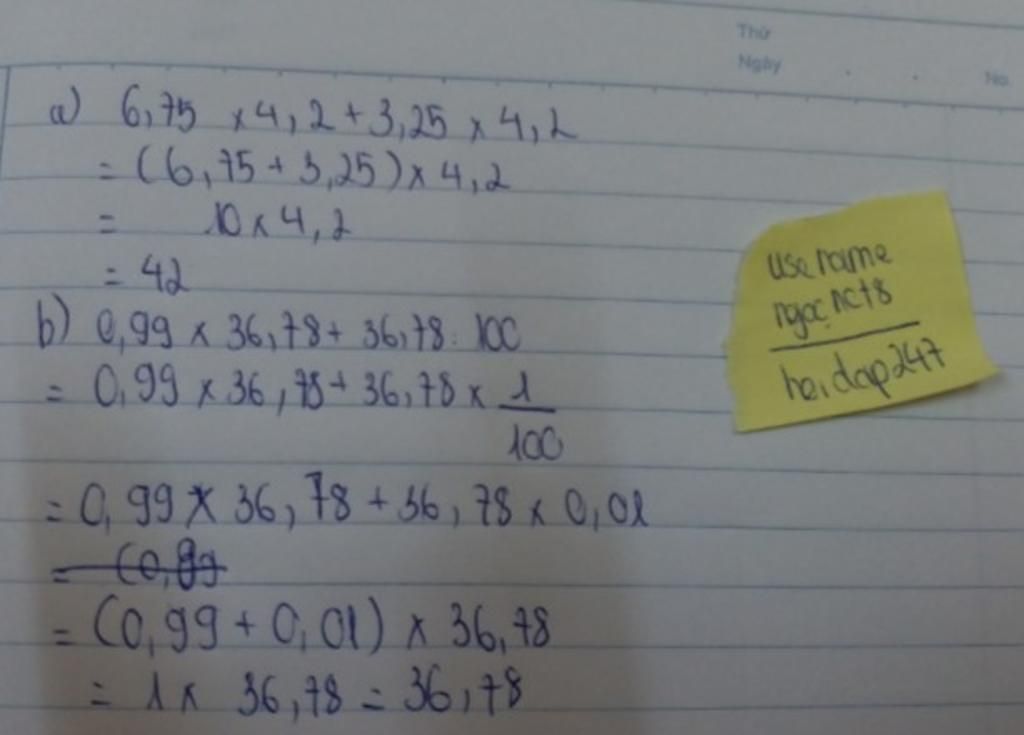 Thứ
Ngày . . No.
a) 6,75 × 4,2 + 3,25 × 4,2
= (6,75 + 3,25) × 4,2
= 10 × 4,2
= 42
b) 0,99 × 36,78 + 36,78 : 100
= 0,99 × 36,78 + 36,78 × 1/100
= 0,99 × 36,78 + 36,78 × 0,01
= (0,99
= (0,99 + 0,01) × 36,78
= 1 × 36,78 = 36,78
use name
ngoc nct8
hoidap247